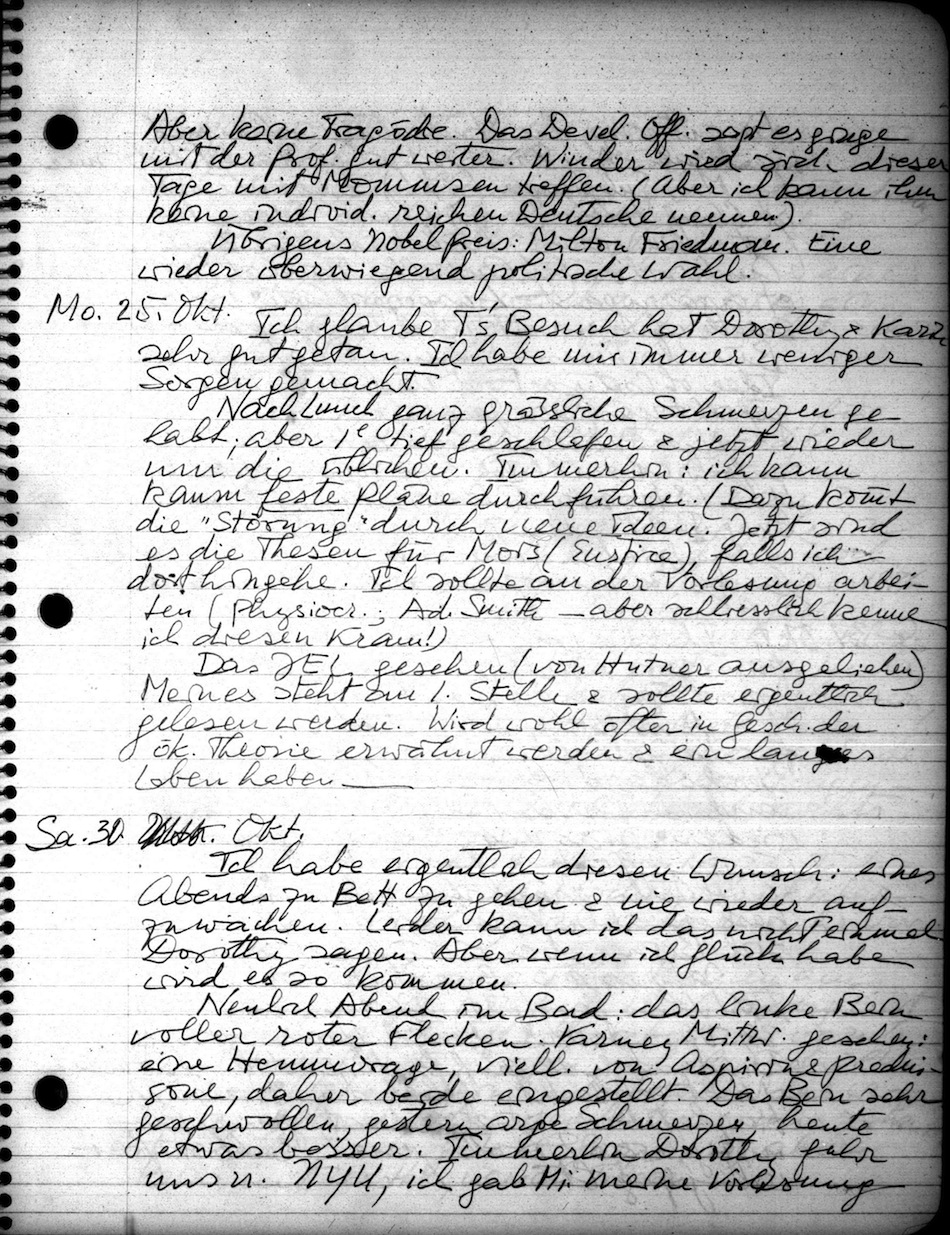 Aber keine Tragödie. Das Devel. Off. sagt es ginge
mit der Prof. gut weiter. Winder wird sich dieser
Tage mit Mommsen treffen. (Aber ich kann ihm
keine individ. reichen Deutsche nennen).
Übrigens Nobelpreis: Milton Friedman. Eine
wieder überwiegend politische Wahl.
Mo. 25. Okt.
Ich glaube T's Besuch hat Dorothy & Karin
sehr gut getan. Ich habe mir immer weniger
Sorgen gemacht.
Nach Lunch ganz grässliche Schmerzen ge-
habt; aber 1h tief geschlafen & jetzt wieder
nur die üblichen. Immerhin: ich kann
kaum feste Pläne durchführen. (Dazu komt
die "Störung" durch neue Ideen. Jetzt sind
es die Thesen für (Eustice), falls ich
dorthingehe. Ich sollte an der Vorlesung arbei-
ten (Physiocr.; Ad. Smith – aber schliesslich kenne
ich diesen Kram!)
Das JEL gesehen (von Hutner ausgeliehen)
Meines steht an 1. Stelle & sollte eigentlich
gelesen werden. Wird wohl öfter in Gesch. der
ök. Theorie erwähnt werden & ein langes
Leben haben —
Sa. 30. Okt.
Ich habe eigentlich diesen Wunsch: eines
Abends zu Bett zu gehen & nie wieder auf-
zuwachen. Leider kann ich das nicht einmal
Dorothy sagen. Aber wenn ich Glück habe
wird es so kommen.
Neulich Abend im Bad: das linke Bein
voller roter Flecken. Varney Mittw. gesehen:
eine Hemmorage, viell. von Aspirin & Predni-
sone, daher beide eingestellt. Das Bein sehr
geschwollen, gestern arge Schmerzen, heute
etwas besser. Immerhin Dorothy fuhr
uns n. NYU, ich gab Mi. meine Vorlesung